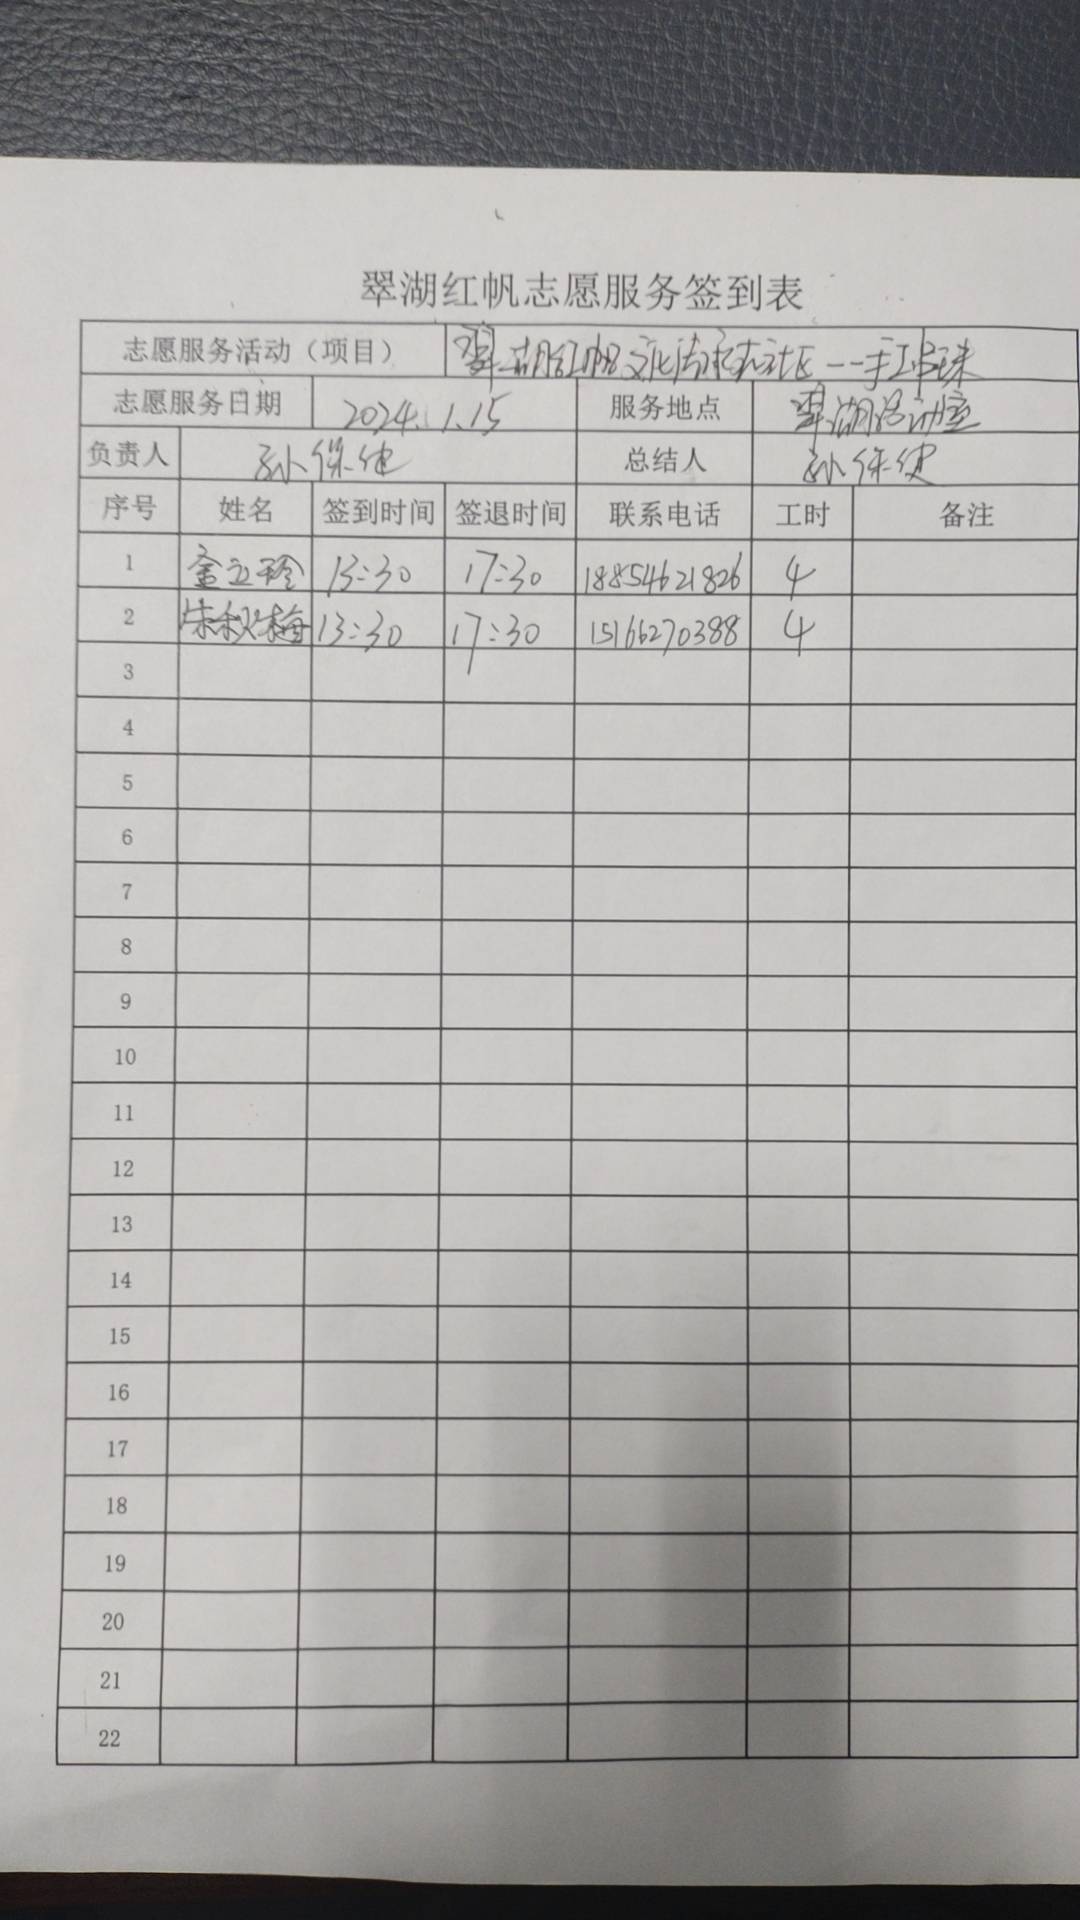 翠湖红帆志愿服务签到表
志愿服务活动（项目） 翠湖红帆文化传承在社区——手工串珠
志愿服务日期 2024.1.15 服务地点 翠湖活动室
负责人 孙保健 总结人 孙保健
序号 姓名 签到时间 签退时间 联系电话 工时 备注
1 金立玲 13:30 17:30 18854621826 4
2 朱秋梅 13:30 17:30 15166270388 4
3
4
5
6
7
8
9
10
11
12
13
14
15
16
17
18
19
20
21
22